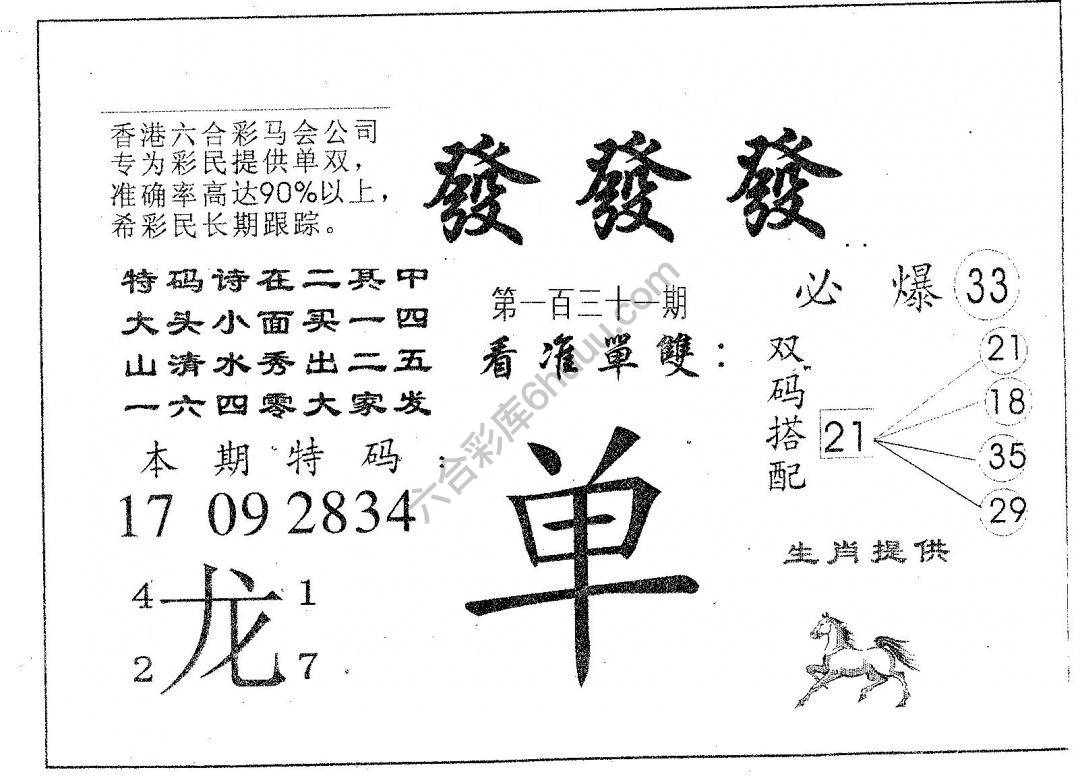 香港六合彩马会公司
专为彩民提供单双，
准确率高达90%以上，
希彩民长期跟踪。
發 發 發
特码诗在二其中
大头小面买一四
山清水秀出二五
一六四零大家发
第一百三十一期
看准單雙：
单
必 爆 33
双码搭配
21
21
18
35
29
本期特码：
17 09 28 34
4 龙 1
2 7
生肖提供
六合彩库6huuu.com